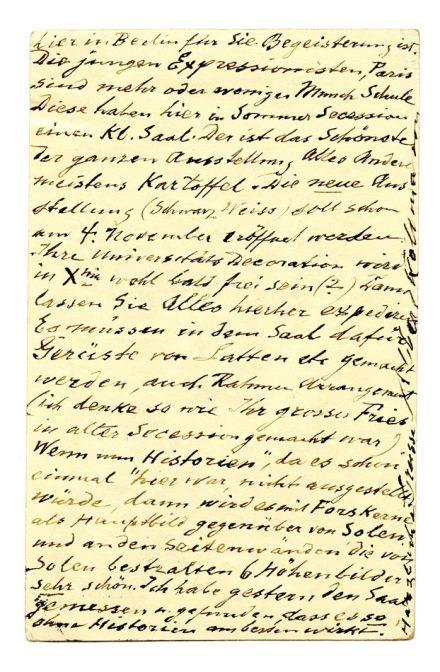 hier in Berlin für Sie Begeisterung ist.
Die jungen Expressionisten, Paris
sind mehr oder weniger Munch Schule
Diese haben hier in Sommer Secession
einen Kl. Saal. Der ist das Schönste
der ganzen Ausstellung Alles Andere
meistens Kartoffel. Die neue Aus
stellung (Schwarz Weiss) soll schon
am 4. November eröffnet werden.
Ihre Universitäts Decoration wird
in X wohl bald frei sein (?) Dann
lassen Sie Alles hierher expediren
Es müssen in dem Saal dafür
Gerüste von Latten etc gemacht
werden, auch Rahmen derangement
(ich denke so wie Ihr grosser Fries
in alter Secession gemacht war)
Wenn nun Historien", da es schon
einmal "hier war, nicht ausgestellt
würde, dann wird es mit Forskerne
als Hauptbild gegenüber von Solen,
und an den Seitenwänden die von
Solen bestralten 6 Höhenbilder
sehr schön. Ich habe gestern den Saal
gemessen u. gefunden, dass es so
ohne Historien am besten wirkt.